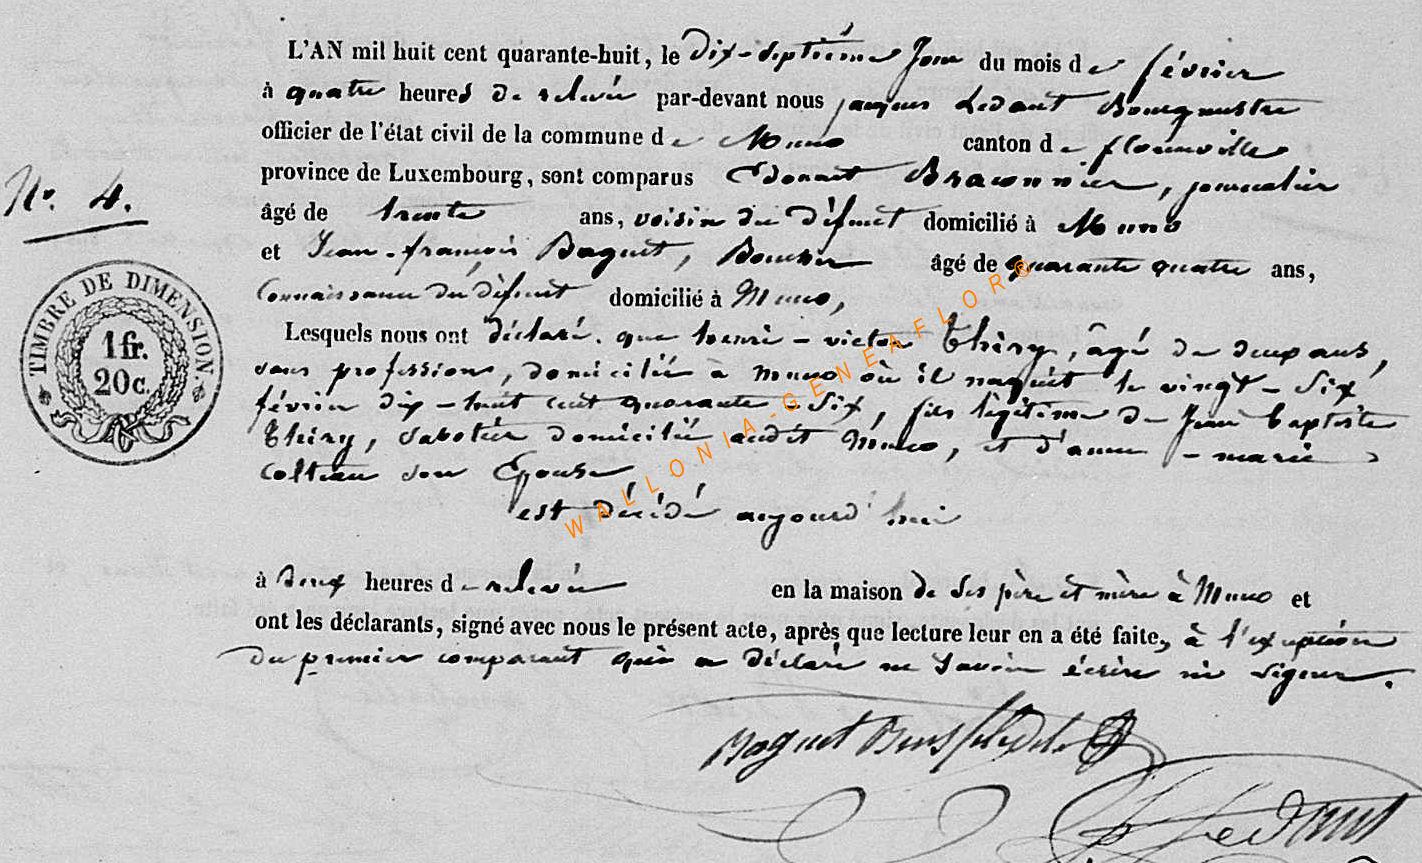 L'AN mil huit cent quarante-huit, le dix-septième jour du mois de février
à quatre heures de relevée par-devant nous Jacques Ledant Bourgmestre
officier de l'état civil de la commune de Muno canton de florenville
province de Luxembourg, sont comparus Edouard Braconnier, journalier
âgé de trente ans, voisin du défunt domicilié à Muno
N°. 4.
et Jean-françois Baguet, âgé de quarante quatre ans,
Connaissance du défunt domicilié à Muno,
TIMBRE DE DIMENSION
1 fr.
20 c.
Lesquels nous ont déclaré que henri-victor Thiry, âgé de deux ans,
sans profession, domicilié à Muno où il naquit le vingt-six
février dix-huit cent quarante-six, fils légitime de Jean baptiste
Thiry, sabotier domicilié audit Muno, et d'anne-marie
colteau son Epouse
est décédé aujourd'hui
à deux heures de relevée en la maison de ses père et mère à Muno et
ont les déclarants, signé avec nous le présent acte, après que lecture leur en a été faite, à l'exception
du premier comparant qui a déclaré ne savoir écrire ni signer.
Baguet
Ledant
WALLONIA-GENEAFLOR®